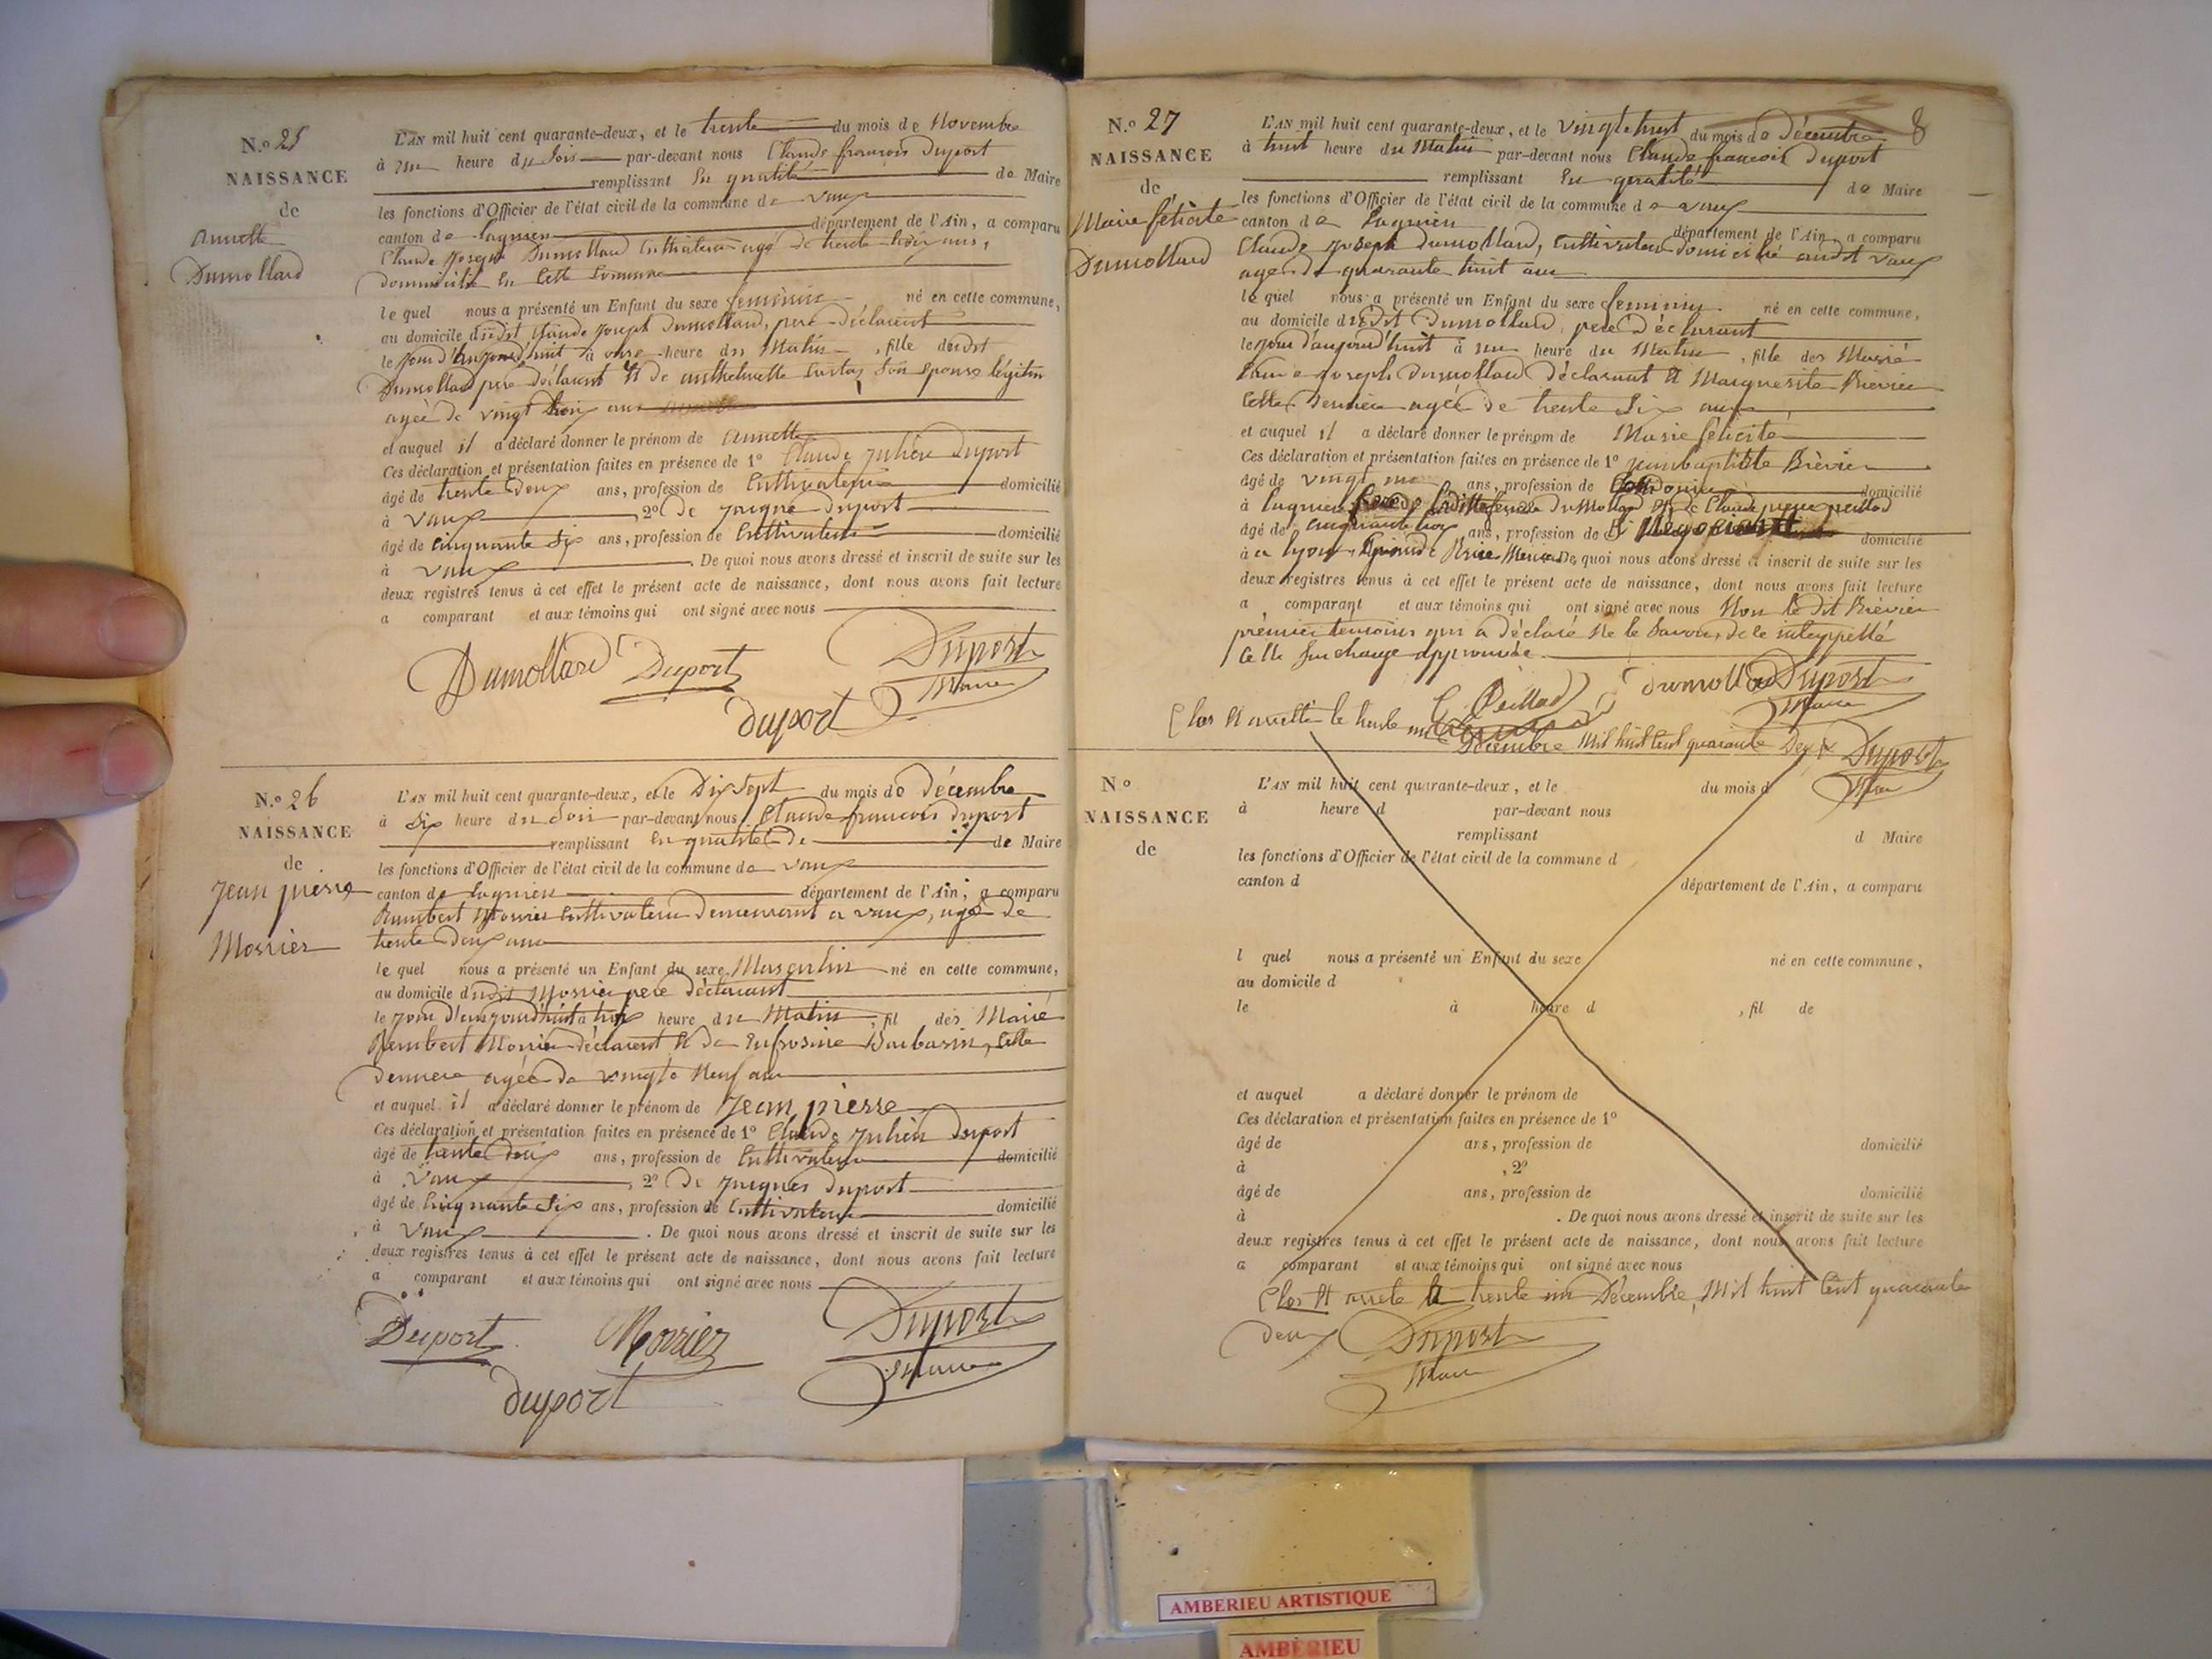 N.º 25
NAISSANCE
de
Annette
Dumollard
L'AN mil huit cent quarante-deux, et le trente du mois de Novembre
à une heure du soir par-devant nous Claude françois Duport
remplissant en qualité de Maire
les fonctions d'Officier de l'état civil de la commune de vaux
canton de Lagnieu département de l'Ain, a comparu
Claude Joseph Dumollard Cultivateur agé de trente ans,
domicilié en cette Commune
le quel nous a présenté un Enfant du sexe féminin né en cette commune,
au domicile dudit Claude Joseph Dumollard, père déclarant
le jour d'aujourd'huit à onze heure du Matin, fille dudit
Dumollard père déclarant et de son épouse légitime
agée de vingt ans
et auquel il a déclaré donner le prénom de Annette
Ces déclaration et présentation faites en présence de 1º Claude Julien Duport
âgé de trente deux ans, profession de Cultivateur domicilié
à vaux, 2º de Jacques Duport
âgé de Cinquante Six ans, profession de Cultivateur domicilié
à vaux. De quoi nous avons dressé et inscrit de suite sur les
deux registres tenus à cet effet le présent acte de naissance, dont nous avons fait lecture
a comparant et aux témoins qui ont signé avec nous
Dumollard Duport Duport
Maire
duport
N.º 26
NAISSANCE
de
Jean pierre
Morrier
L'AN mil huit cent quarante-deux, et le Dix Sept du mois de décembre
à Six heure du Soir par-devant nous Claude françois Duport
remplissant en qualité de de Maire
les fonctions d'Officier de l'état civil de la commune de vaux
canton de Lagnieu département de l'Ain, a comparu
Rambert Morrier Cultivateur demeurant a vaux, agé de
trente deux ans
le quel nous a présenté un Enfant du sexe Masculin né en cette commune,
au domicile dudit Morrier père déclarant
le jour d'aujourd'huit à heure du Matin, fil des Marié
Rambert Morrier déclarant et de Eufrosine Barbarin, Cette
dernière agée de vingt Neuf ans
et auquel il a déclaré donner le prénom de Jean pierre
Ces déclaration et présentation faites en présence de 1º Claude Julien Duport
âgé de trente deux ans, profession de Cultivateur domicilié
à Vaux, 2º de Jacques Duport
âgé de Cinquante Six ans, profession de Cultivateur domicilié
à vaux. De quoi nous avons dressé et inscrit de suite sur les
deux registres tenus à cet effet le présent acte de naissance, dont nous avons fait lecture
a comparant et aux témoins qui ont signé avec nous
Duport Morrier Duport
Maire
duport
8
N.º 27
NAISSANCE
de
Marie félicité
Dumollard
L'AN mil huit cent quarante-deux, et le Vingt huit du mois de décembre
à huit heure du Matin par-devant nous Claude françois Duport
remplissant en qualité de Maire
les fonctions d'Officier de l'état civil de la commune de vaux
canton de Lagnieu département de l'Ain, a comparu
Claude Joseph Dumollard, Cultivateur domicilié audit vaux
agé de quarante huit ans
le quel nous a présenté un Enfant du sexe féminin né en cette commune,
au domicile dudit Dumollard, père déclarant
le jour d'aujourd'huit à une heure du Matin, fille des Marié
Joseph Dumollard déclarant et Marguerite Brévier
Cette dernière agée de trente Six ans
et auquel il a déclaré donner le prénom de Marie félicité
Ces déclaration et présentation faites en présence de 1º Jean baptiste Brévier
âgé de vingt ans, profession de Cordonnier domicilié
à Lagnieu Dumollard et de Claude pierre peillod
âgé de cinquante ans, profession de Négociant domicilié
à a Lyon, De quoi nous avons dressé et inscrit de suite sur les
deux registres tenus à cet effet le présent acte de naissance, dont nous avons fait lecture
a comparant et aux témoins qui ont signé avec nous Non le dit Brévier
premier temoins qui a déclaré ne le Savoir, de ce interppellé
Cette Surcharge approuvée
C. Peillod Dumollard Duport
Maire
Clos et arrêté le trente un
Décembre Mil huit Cent quarante Deux Duport
Maire
N.º
NAISSANCE
de
L'AN mil huit cent quarante-deux, et le du mois d
à heure d par-devant nous
remplissant d Maire
les fonctions d'Officier de l'état civil de la commune d
canton d département de l'Ain, a comparu
l quel nous a présenté un Enfant du sexe né en cette commune,
au domicile d
le à heure d , fil de
et auquel a déclaré donner le prénom de
Ces déclaration et présentation faites en présence de 1º
âgé de ans, profession de domicilié
à , 2º
âgé de ans, profession de domicilié
à . De quoi nous avons dressé et inscrit de suite sur les
deux registres tenus à cet effet le présent acte de naissance, dont nous avons fait lecture
a comparant et aux témoins qui ont signé avec nous
Clos et arrêté le trente un Décembre, Mil huit Cent quarante
deux Duport
Maire
AMBERIEU ARTISTIQUE
AMBERIEU